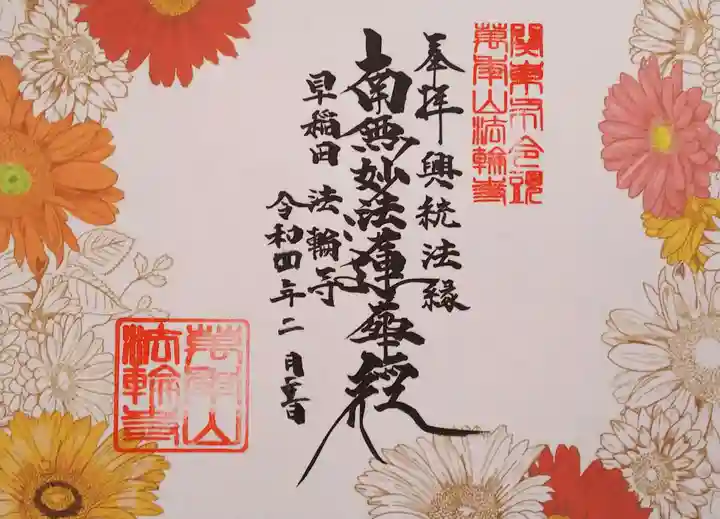 奉拝 興統法縁
南無妙法蓮華経
早稲田 法輪寺
令和四年二月吉日
萬年山法輪寺
萬年山
法輪寺